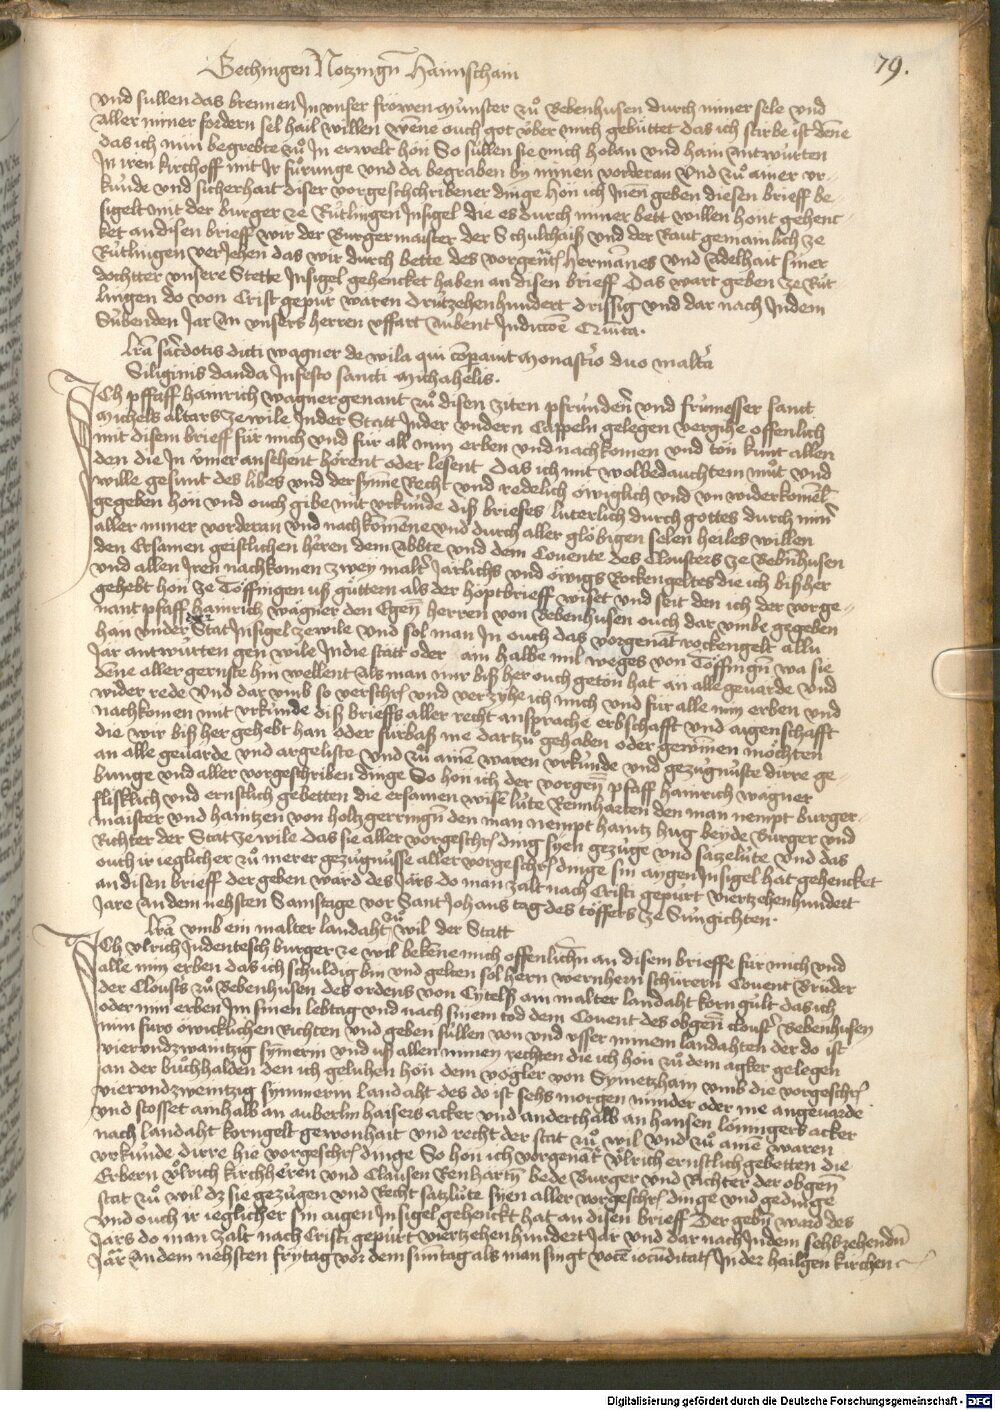 Gechingen Notzingn̄ Haimschain
79.
vnd sullen das brennen In vnser frowen Múnster zů Bebenhusen durch miner sele vnd
aller miner fordern sel hail willen wene ouch got úber mich gebúttet das ich stirbe ist dene
das ich min begrebte zů In erwelt hon So súllen sie mich holan vnd hain antwúrten
In iren kirchoff mit Ir fůrunge vnd da begraben by minen vorderan vnd zů ainer vr-
kúnde vnd sicherhait diser vorgeschribener dinge Hon ich Inen geben diesen brieff be-
sigelt mit der burger ze Rútlingen Insigel die es durch miner bett willen hont gehenc-
ket an disen brieff wir der Burgermaister der Schulthaiß vnd der Raut gemainlich ze
Rútlingen veriehen das wir durch bette des vorgent͂ Hermanes vnd Adelhait siner
dochtter vnsere Stette Insigel gehencket haben an disen brieff Das wart geben ze Rút
lingen do von Crist gepúr waren drútzehenhundert drissig vnd dar nach Indem
Súbenden Jar an vnsers herren vffart aubent Indiccōe Quinta.
Lr̄a sac̄dotis dicti wagner de wila qui cōparauit monastīo duo maltr̄a
Siliginis danda In festo sancti Michahelis.
Ich pffaff hainrich wagner genant zů disen ziten pfrúnden̄ vnd frúmesser sant
Michels altars ze wile Inder Statt Inder vndern Cappeln gelegen vergihe offenlich
mit disem brieff fúr mich vnd fúr all min erben vnd nachkomen vnd tůn kunt allen
den die In ymer ansehent hörent oder lesent das ich mit wolbedauchtem můt vnd
wille gesunt des libes vnd der synne Recht vnd redelich ówiglich vnd vn widerkomēl
gegeben hon vnd ouch gibe mit vrkúnde diß briefes luterlich durch gottes durch min̄
aller miner vorderan vnd nachkomene vnd durch aller glöbigen selen heiles willen
den Ersamen geistlichen heren dem Abbte vnd dem Couente des Closters ze Bebn̄husen
vnd allen Iren nachkomen zwey maltr̄ Järlichs vnd ówigs Rockengeltes die ich bißher
gehebt hon ze Töffingen vß gúttern als der höptbrieff wiset vnd seit den ich der vorge-
nant pfaff hainrich wagner den Egen̄ herren von Bebenhusen ouch dar vmbe gegeben
han vnder der Stat Insigel ze wile vnd sol man In ouch das vorgenāt rockengelt allú
Jar antwúrten gen wile In die statt oder ain halbe mil weges von Töffingn̄ wa sie
dēne aller gernste hin wellent als man mir biß her ouch geton hat än alle geuarde vnd
wider rede Vnd dar vmb so verschrib vnd verzyhe ich mich vnd fúr alle min erben vnd
nachkomen mit vrkúnde diß brieffs aller recht ansprache erbschafft vnd aigenschafft
die wir biß her gehebt han oder fúrbaß me dartzů gehaben oder gewinnen möchten
an alle geuarde vnd argeliste vnd zů ainē waren vrkúnde vnd gezúgnúste dirre ge-
bunge vnd aller vorgeschriben dinge So hon ich der vorgen̄ pfaff hainrich wagner
flislklich vnd ernstlich gebetten die ersamen wisē lúte Reinharten den man nempt burger-
maister vnd haintzen von holtzgerringn̄ den man nempt haintz hug beyde Burger vnd
Richter der Stat ze wile das sie aller vorgeschrʒ ding syen gezúge vnd satzelúte vnd das
ouch ir ieglicher zů merer gezúgnússe aller vorgeschrʒ dinge sin aigen Insigel hat gehencket
an disen brieff der geben ward des Järs do man zalt nach Cristi gepúrt viertzehenhundert
Jare an dem nehsten Samstage vor Sant Johans tag des töffers ze Súngichten.
Lr̄a vmb ein malter landaht zů wil der Statt
Ich vlrich Judentesch burger ze wil bekēne mich offenlichn̄ an disem brieffe fúr mich vnd
alle min erben das ich schuldig bin vnd gelten sol hern wernhern schúrern Couent Brúder
der Closters zů Bebenhusen des ordens von Cytelß ain malter landaht korn gúlt das ich
oder min erben Im sinen lebtag vnd nach sinem tod dem Couent des obgen̄ closters Bebenhusen
nun fúro öwicklichen Richten vnd geben súllen von vnd vsser minem landahten der do ist
vierundzwaintzig symerin vnd vß allen minen rechten die ich hon zů dem agker gelegen
an der bůchhalden den ich geluhen hon dem vogler von Symetzhain vmb die vorgeschrʒ
vierundzweintzig symmerin landaht des do ist sehs morgen minder oder me angeuarde
vnd stosset ainhalb an auberlin haisers acker vnd anderthalb an hansen löningers acker
nach landaht korngelt gewonhait vnd recht der stat zů wil vnd zů ainē waren
vrkúnde dirre hie vorgeschrʒ dinge So hon ich vorgenāt vlrich ernstlich gebetten die
Erbern vlrich kirchherren vnd Clausen Renhartn̄ bede Burger vnd Richter der obgen̄
stat zů wil dz sie gezúgen vnd Recht satzlúte syen aller vorgeschrʒ dinge vnd gedinge
vnd ouch ir ieglicher sin aigen Insigel gehenckt hat an disen brieff Der gebn̄ ward des
Järs do man zalt nach Cristi gepúrt viertzehenhundert Jar vnd dar nach Indem sehszehendn̄
Jär An dem nehsten frytag vor dem suntag als man singt vocē iocūditatʒ In der hailgen kirchen
Digitalisierung gefördert durch die Deutsche Forschungsgemeinschaft - DFG